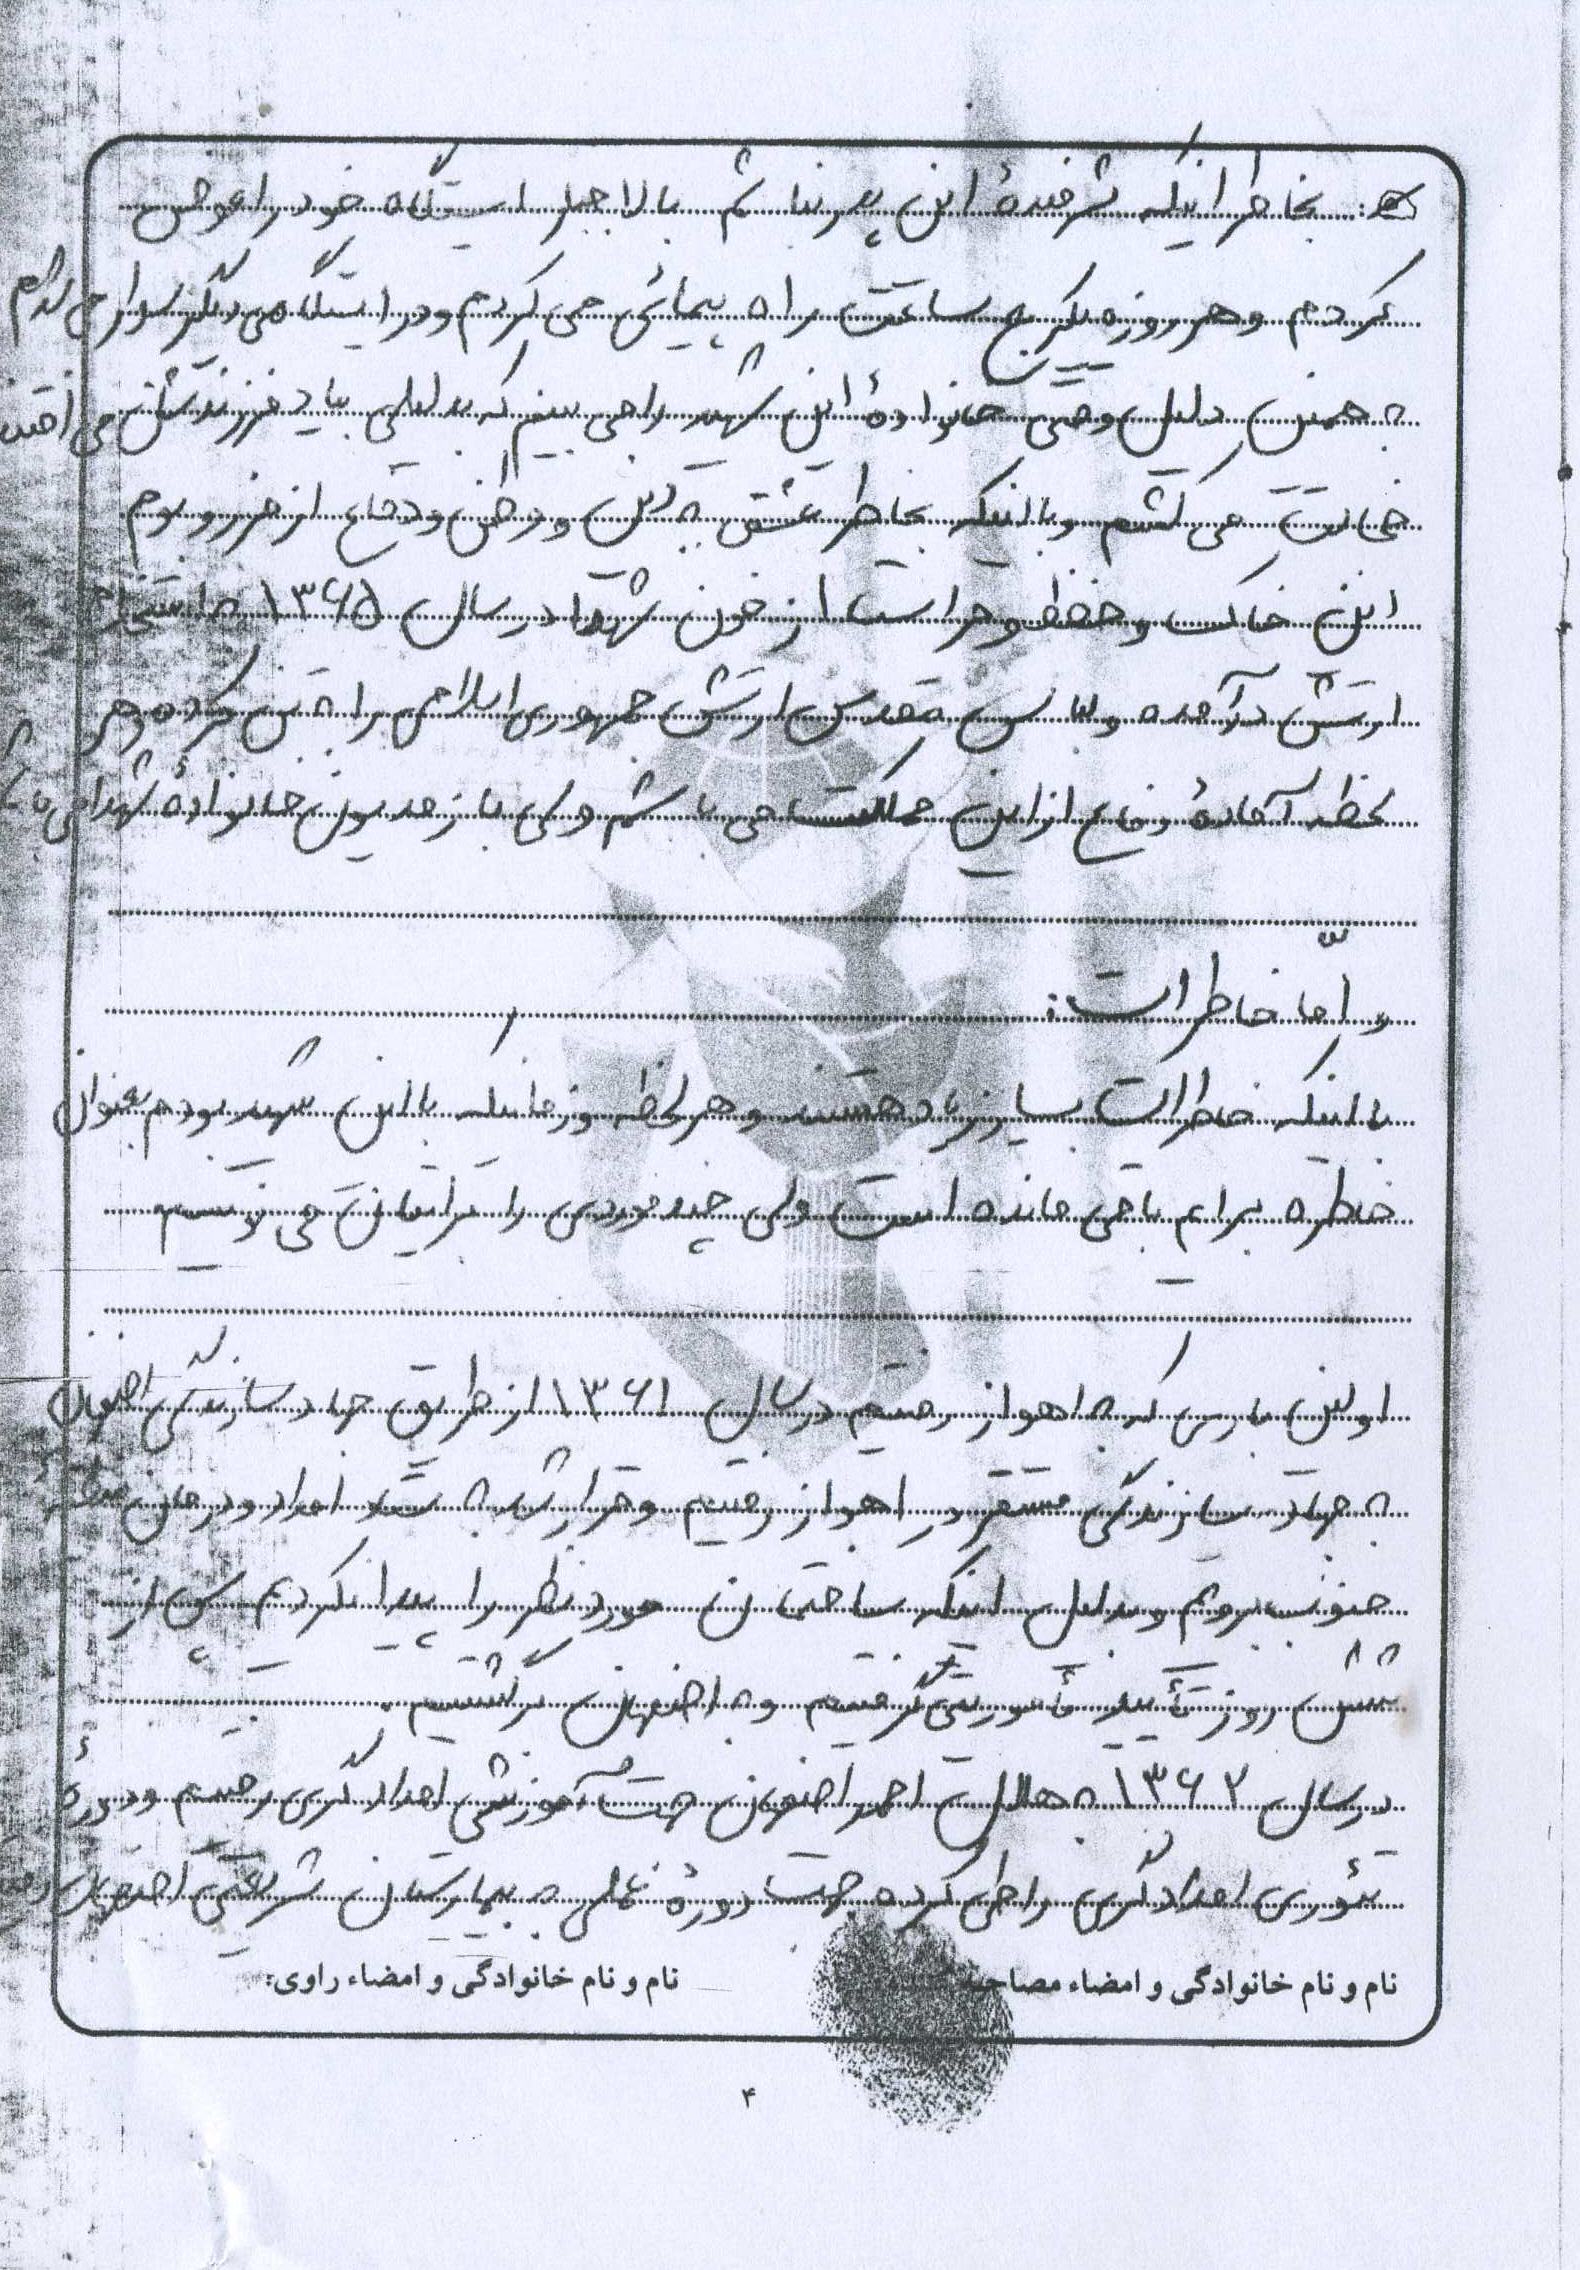 بخاطر اینکه شرمندهٔ این پدر نباشم بالاجبار ایستگاه خود را عوض
کردم و هر روز یکربع ساعت راه پیمائی می کردم و در ایستگاهی دیگر سوار می شدم
به همین دلیل وقتی خانوادهٔ این شهید را می بینم که بدلیلی بیاد فرزندشان می افتند
خجالت می کشم و با اینکه بخاطر عشق به دین و وطن و دفاع از مرز و بوم
این خاک و حفظ و حراست از خون شهدا در سال ۱۳۶۵ به استخدام
ارتش درآمده و لباس مقدس ارتش جمهوری اسلامی را به تن کرده و هر
لحظه آمادهٔ دفاع از این مملکت می باشم ولی باز مدیون خانوادهٔ شهدا می باشم
و امّا خاطرات:
با اینکه خاطرات بسیار زیاد هستند و هر لحظه و زمانیکه با این شهید بودم بعنوان
خاطره برایم باقی مانده است ولی چند موردی را برایتان می نویسم
اولین باری که به اهواز رفتیم در سال ۱۳۶۱ از طریق جهاد سازندگی اصفهان
به جهاد سازندگی مستقر در اهواز رفتیم و قرار شد به ستاد امداد و درمان
جنوب برویم و بدلیل اینکه ساختمان مورد نظر را پیدا نکردیم پس از
شش روز تأیید مأموریتی گرفتیم و به اصفهان برگشتیم.
در سال ۱۳۶۲ به هلال احمر اصفهان جهت آموزشی امدادگری رفتیم و دورهٔ
تئوری امدادگری را طی کرده جهت دورهٔ عملی به بیمارستان شریعتی اصفهان
نام و نام خانوادگی و امضاء مصاحبه
نام و نام خانوادگی و امضاء راوی:
۴